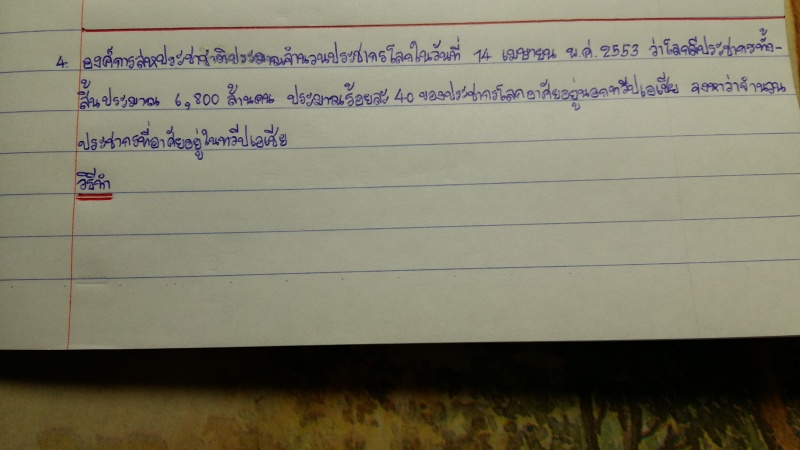 4. องค์การสหประชาชาติประมาณจำนวนประชากรโลกในวันที่ 14 เมษายน พ.ศ. 2553 ว่าโลกมีประชากรทั้ง-
สิ้นประมาณ 6,800 ล้านคน ประมาณร้อยละ 40 ของประชากรโลกอาศัยอยู่นอกทวีปเอเชีย จงหาว่าจำนวน
ประชากรที่อาศัยอยู่ในทวีปเอเชีย
วิธีทำ